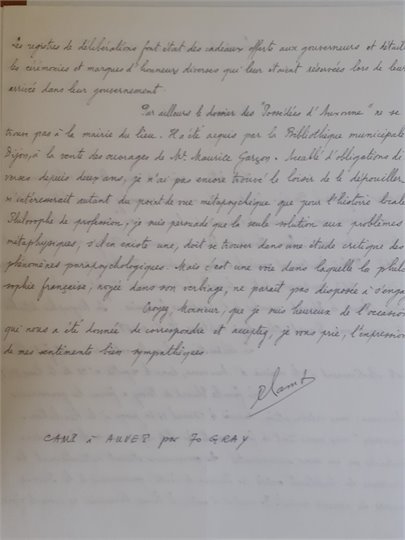 Les registres de délibérations font état des cadeaux offerts aux gouverneurs et détail
les cérémonies et marques d'honneurs diverses qui leur étaient réservées lors de leur
arrivée dans leur gouvernement.
Par ailleurs le dossier des "Possédées d'Auxonne" ne se
trouve pas à la mairie du lieu. Il a été acquis par la Bibliothèque municipale
Dijon, à la vente des ouvrages de Mr. Maurice Garçon. Accablé d'obligations di
verses depuis deux ans, je n'ai pas encore trouvé le loisir de le dépouiller,
m'intéresserait autant du point de vue métapsychique que pour l'histoire locale
Philosophe de profession, je suis persuadé que la seule solution aux problèmes
métaphysiques, s'il en existe une, doit se trouver dans une étude critique des
phénomènes parapsychologiques. Mais c'est une voie dans laquelle la philo
sophie française, noyée dans son verbiage, ne paraît pas disposée à s'enga
Croyez, Monsieur, que je suis heureux de l'occasion
qui nous a été donnée de correspondre et acceptez, je vous prie, l'expression
de mes sentiments bien sympathiques
par 70 GRAY